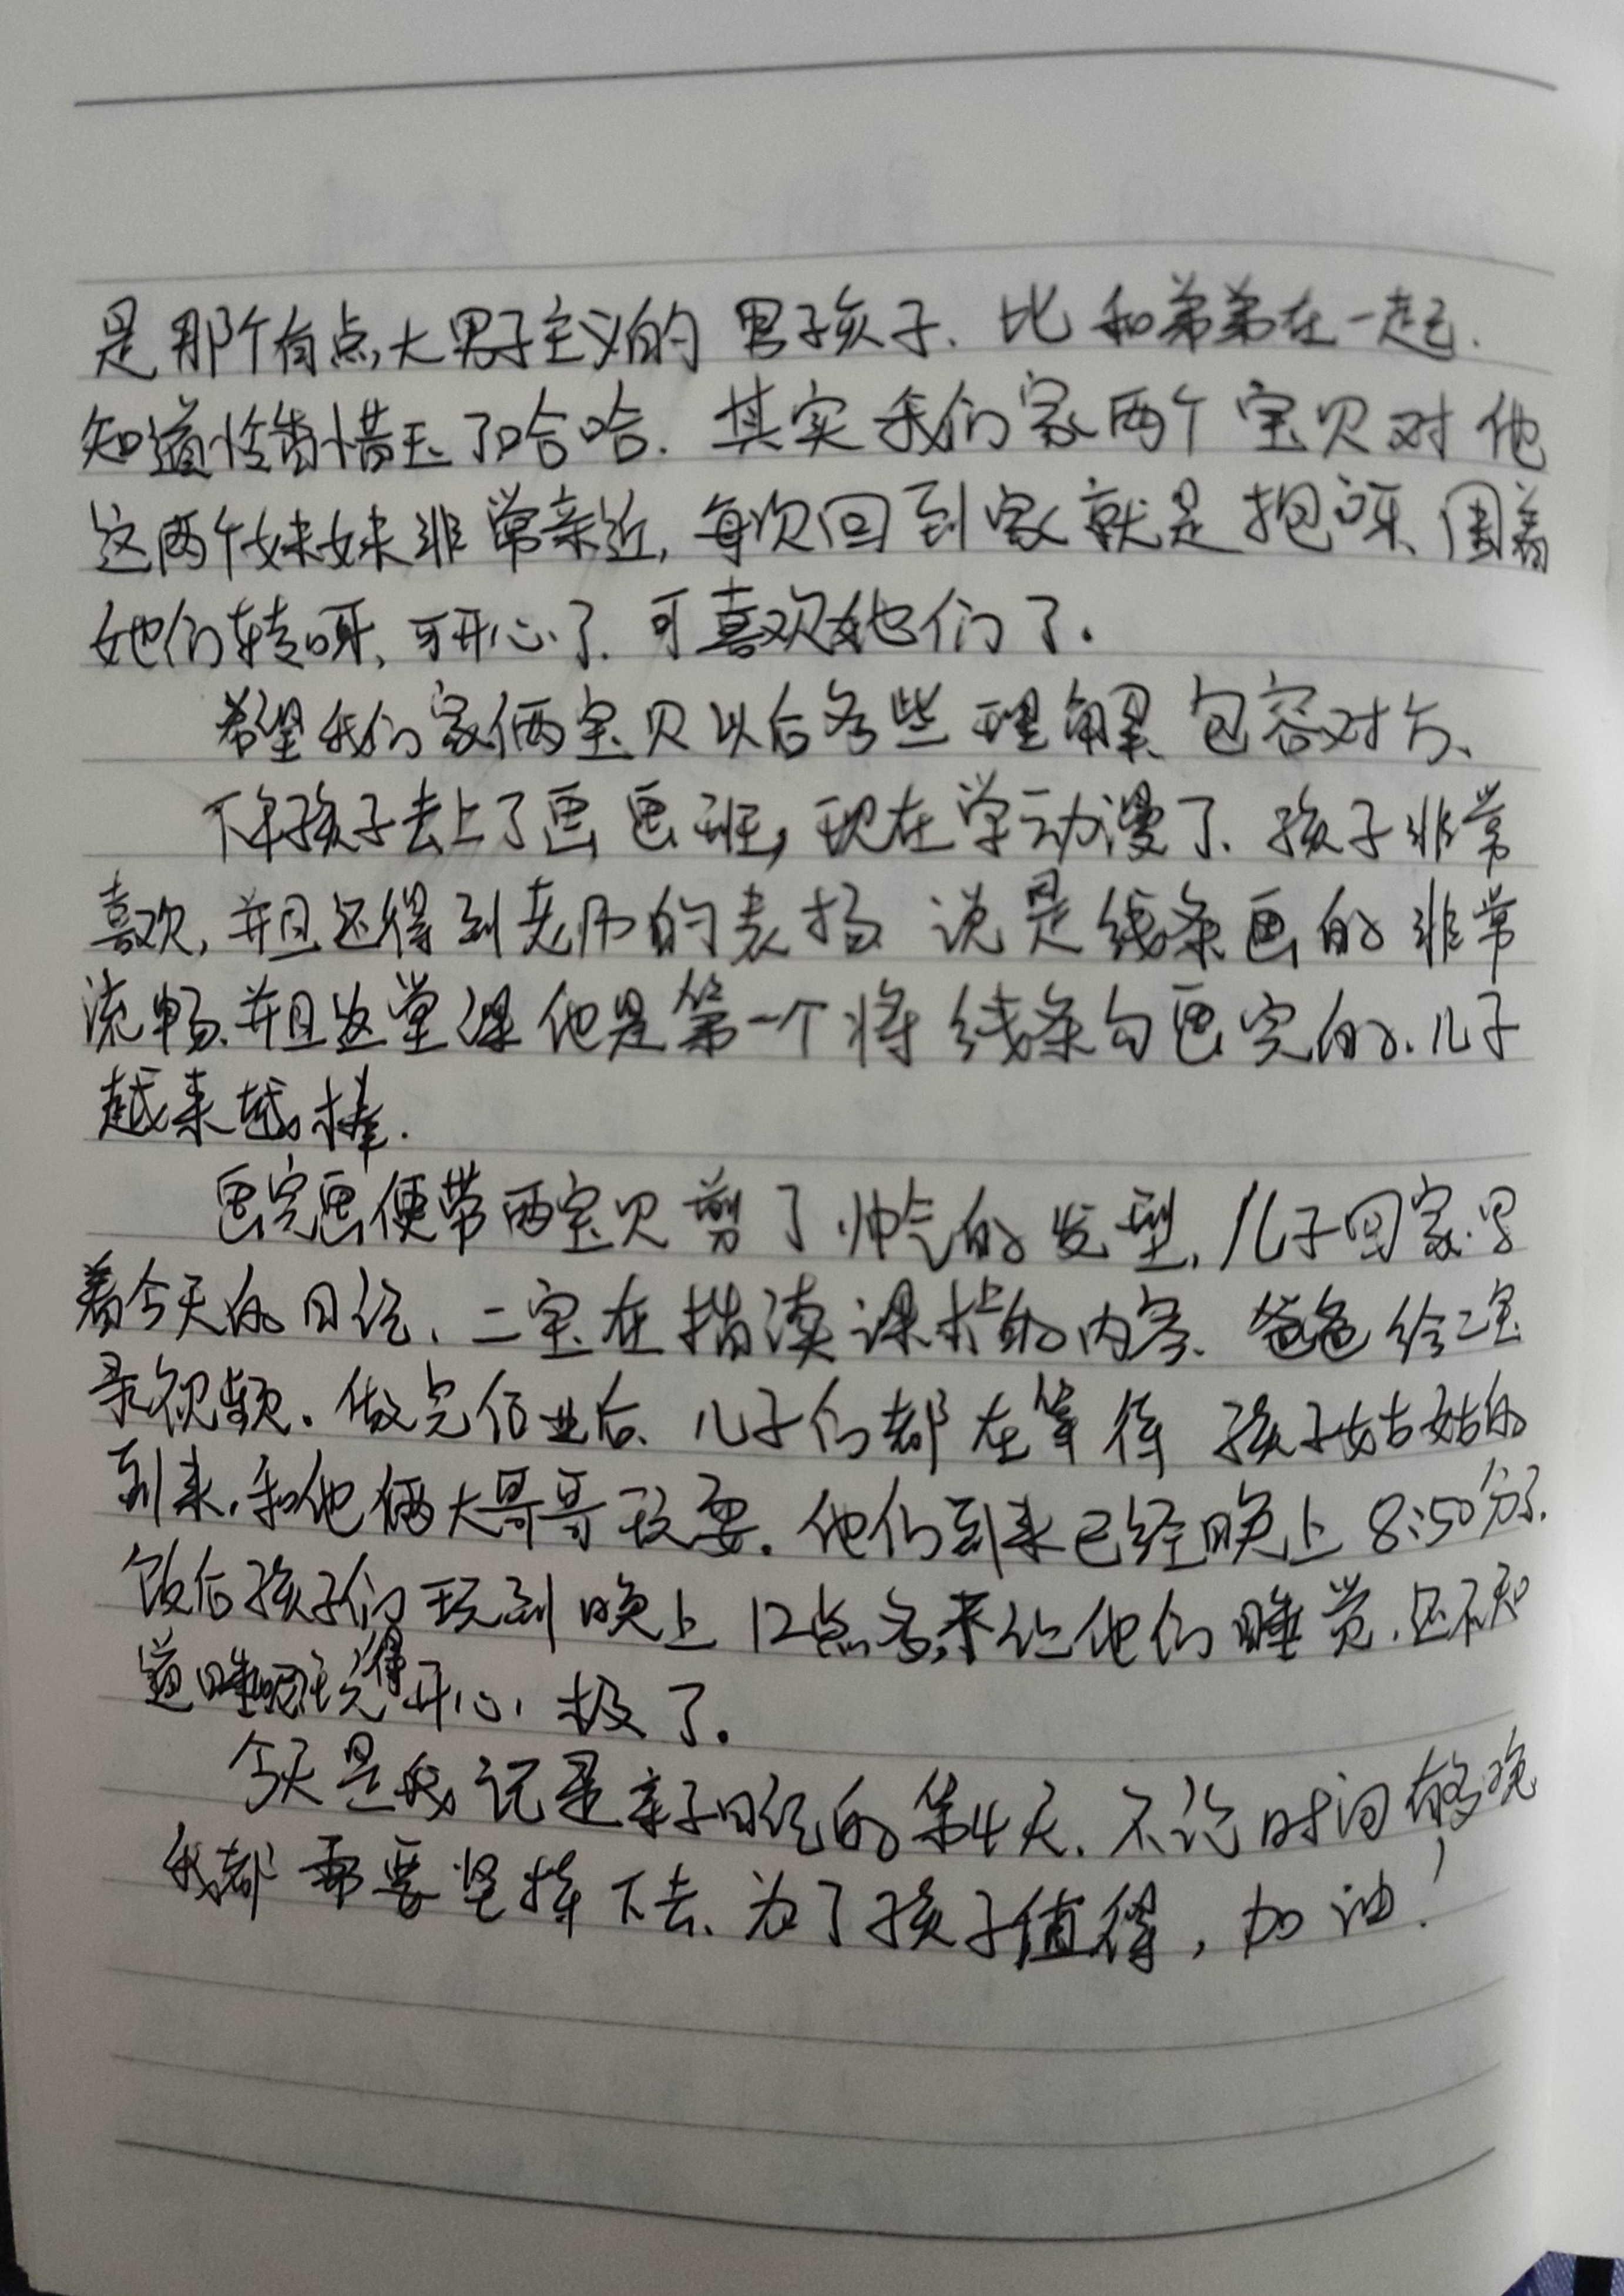 是那个有点大男子主义的男孩子、比和弟弟在一起.
知道怜香惜玉了哈哈. 其实我们家两个宝贝对他
这两个妹妹非常亲近, 每次回到家就是抱呀、围着
她们转呀、可开心了. 可喜欢她们了.
希望我们家俩宝贝以后多些理解、包容对方、
下午孩子去上了画画班, 现在学动漫了、孩子非常
喜欢, 并且还得到老师的表扬 说是线条画的非常
流畅、并且这堂课他是第一个将线条勾画完的、儿子
越来越棒.
画完画便带两宝贝剪了帅气的发型, 儿子回家写
着今天的日记、二宝在指读课本的内容、爸爸给二宝
录视频. 做完作业后、儿子们都在等待孩子姑姑的
到来, 和他俩大哥哥玩耍. 他们到来已经晚上8:50分了.
饭后孩子们玩到晚上12点多, 才让他们睡觉, 还不知
道睡 玩得开心极了.
今天是我记录亲子日记的第4天. 不论时间够晚
我都需要坚持下去、为了孩子值得, 加油!